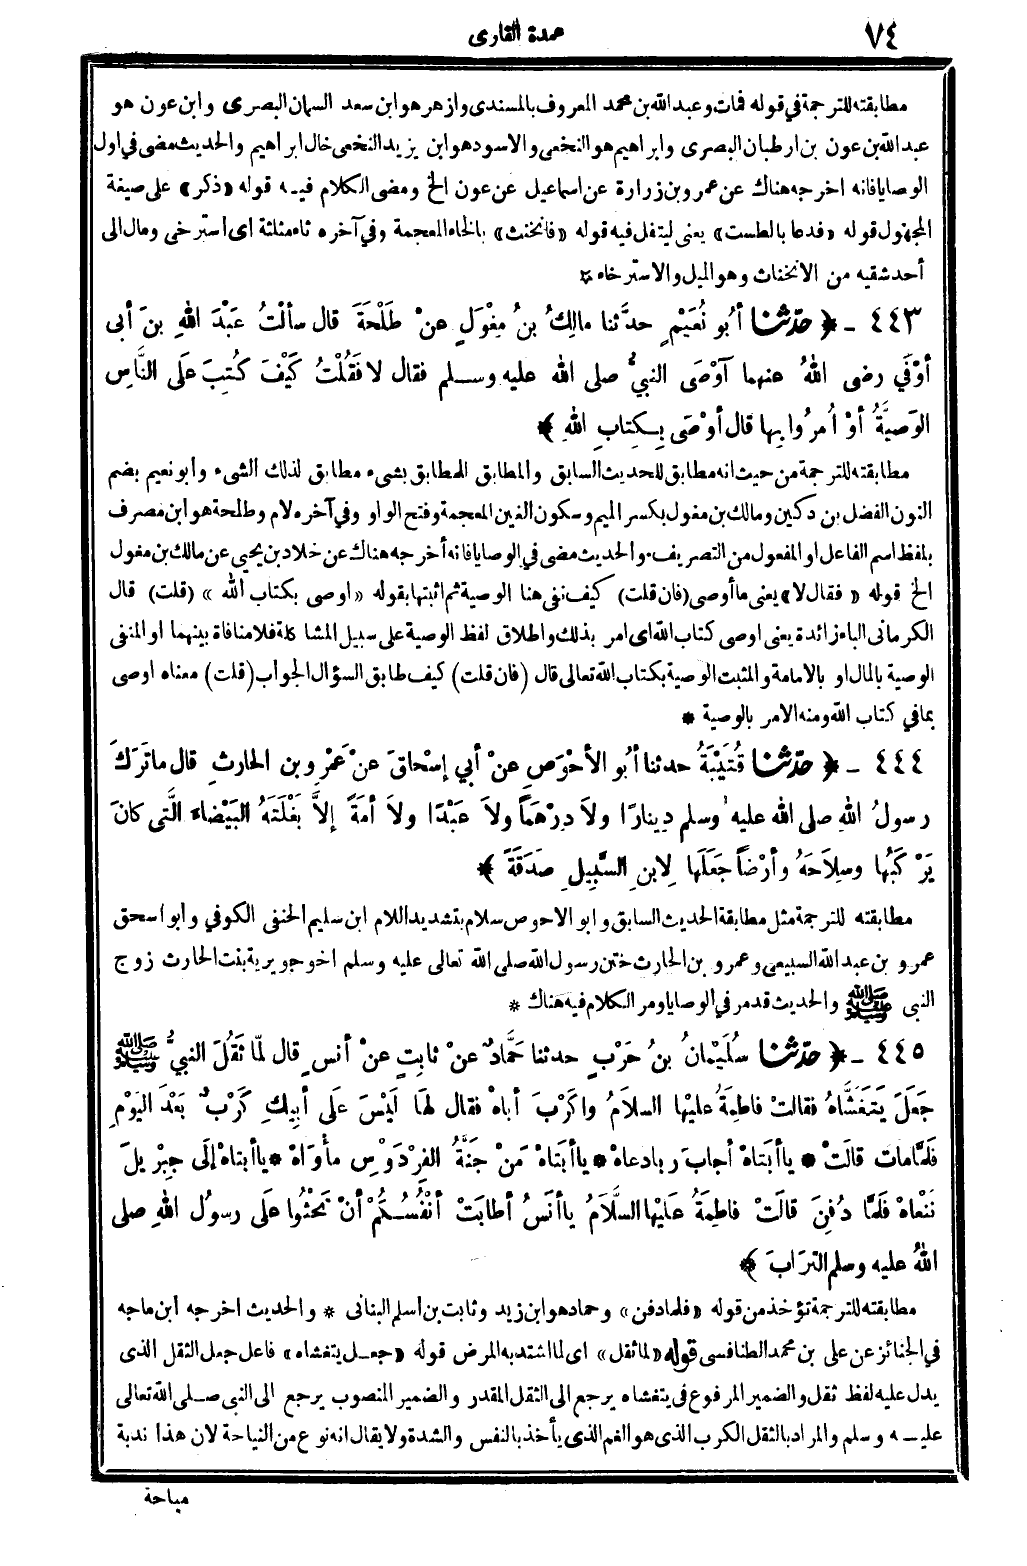 ٧٤
عمدة القارى
مطابقته للترجمة في قوله فمات وعبد الله بن محمد المعروف بالمسندى وازهر هو ابن سعد السمان البصرى وابن عون هو
عبد الله بن عون بن ارطبان البصرى وابراهيم هو النخعى والاسود هو ابن يزيد النخعى خال ابراهيم والحديث مضى في اول
الوصايا فانه اخرجه هناك عن عمرو بن زرارة عن اسماعيل عن عون الخ ومضى الكلام فيه قوله «ذكر» على صيغة
المجهول قوله «فدعا بالطست» يعنى ليتفل فيه قوله «فانخنث» بالخاء المعجمة وفي آخره ثاء مثلثة اى استرخى ومال الى
أحد شقيه من الانخناث وهو الميل والاسترخاء *
٤٤٣ - ﴿ حدثنا أبُو نُعَيْمٍ حدثنا مالِكُ بنُ مِغْوَلٍ عنْ طَلْحَةَ قال سألْتُ عَبْدَ اللهِ بنَ أبى
أوْفَي رضى اللهُ عنهما آوْصَى النبيُّ صلى الله عليه وسلم فقال لا فَقُلْتُ كَيْفَ كُتِبَ علَى النَّاسِ
الوَصِيَّةُ أوْ اُمرُوا بِها قال أوْصَى بِكِتابِ اللهِ ﴾
مطابقته للترجمة من حيث انه مطابق للحديث السابق والمطابق المطابق بشىء مطابق لذلك الشىء وأبو نعيم بضم
النون الفضل بن دكين ومالك بن مغول بكسر الميم وسكون الغين المعجمة وفتح الواو وفي آخره لام وطلحة هو ابن مصرف
بلفظ اسم الفاعل او المفعول من التصريف. والحديث مضى في الوصايا فانه أخرجه هناك عن خلاد بن يحيى عن مالك بن مغول
الخ قوله «فقال لا» يعنى ما أوصى (فان قلت) كيف نفى هنا الوصية ثم اثبتها بقوله «اوصى بكتاب الله» (قلت) قال
الكرمانى الباء زائدة يعنى اوصى كتاب الله اى امر بذلك واطلاق لفظ الوصية على سبيل المشاكلة فلا منافاة بينهما او المنفى
الوصية بالمال او بالامامة والمثبت الوصية بكتاب الله تعالى قال (فان قلت) كيف طابق السؤال الجواب (قلت) معناه اوصى
بما في كتاب الله ومنه الامر بالوصية *
٤٤٤ - ﴿ حدثنا قُتَيْبَةُ حدثنا أبُو الأحْوَصِ عنْ أبي إسْحاقَ عنْ عَمْرِو بن الحارثِ قال ماتَرَكَ
رسولُ اللهِ صلى الله عليه وسلم دِينارًا ولاَ دِرْهَماً ولاَ عَبْدًا ولاَ أمَةً إلاَّ بَغْلَتَهُ البَيْضاءَ الَّتى كانَ
يَرْكَبُها وسِلاَحَهُ وأرْضاً جَعَلَها لِابنِ السَّبِيلِ صَدَقَةً ﴾
مطابقته للترجمة مثل مطابقة الحديث السابق وابو الاحوص سلام بتشديد اللام ابن سليم الحنفى الكوفي وابو اسحق
عمرو بن عبد الله السبيعى وعمرو بن الحارث ختن رسول الله صلى الله تعالى عليه وسلم اخو جويرية بنت الحارث زوج
النبى ﷺ والحديث قد مر في الوصايا ومر الكلام فيه هناك *
٤٤٥ - ﴿ حدثنا سُلَيْمانُ بنُ حَرْبٍ حدثنا حَمَّادٌ عنْ ثابِتٍ عنْ أنَسٍ قال لمّا ثَقُلَ النبيُّ ﷺ
جَعَلَ يَتَغَشَّاهُ فقالتْ فاطِمَةُ عليْها السلاَمُ وا كَرْبَ أباهْ فقال لهَا لَيْسَ علَى أبِيكِ كَرْبٌ بَعْدَ اليَوْمِ
فَلَمَّا مات قالَتْ * يا أبَتاهْ أجابَ ربا دعاهْ * يا أبَتاهْ مَنْ جَنَّةُ الفِرْدَوْسِ مأْوَاهْ * يا أبتاهْ إلَى جِبْرِيلَ
نَنْعاهْ فَلَمَّا دُفِنَ قالَتْ فاطِمَةُ عَلَيْها السَّلاَمُ يا أنَسُ أطابَتْ أنْفُسُكُمْ أنْ تَحْثُوا علَى رسولِ اللهِ صلى
اللهُ عليه وسلم الترَابَ ﴾
مطابقته للترجمة تؤخذ من قوله «فلما دفن» وحماد هو ابن زيد وثابت بن أسلم البنانى * والحديث اخرجه ابن ماجه
في الجنائز عن على بن محمد الطنافسى قوله «لما ثقل» اى لما اشتد به المرض قوله «جعل يتغشاه» فاعل جعل الثقل الذى
يدل عليه لفظ ثقل والضمير المرفوع فى يتغشاه يرجع الى الثقل المقدر والضمير المنصوب يرجع الى النبى صلى الله تعالى
عليه وسلم والمراد بالثقل الكرب الذى هو الغم الذى يأخذ بالنفس والشدة ولا يقال انه نوع من النياحة لان هذا ندبة
مباحة